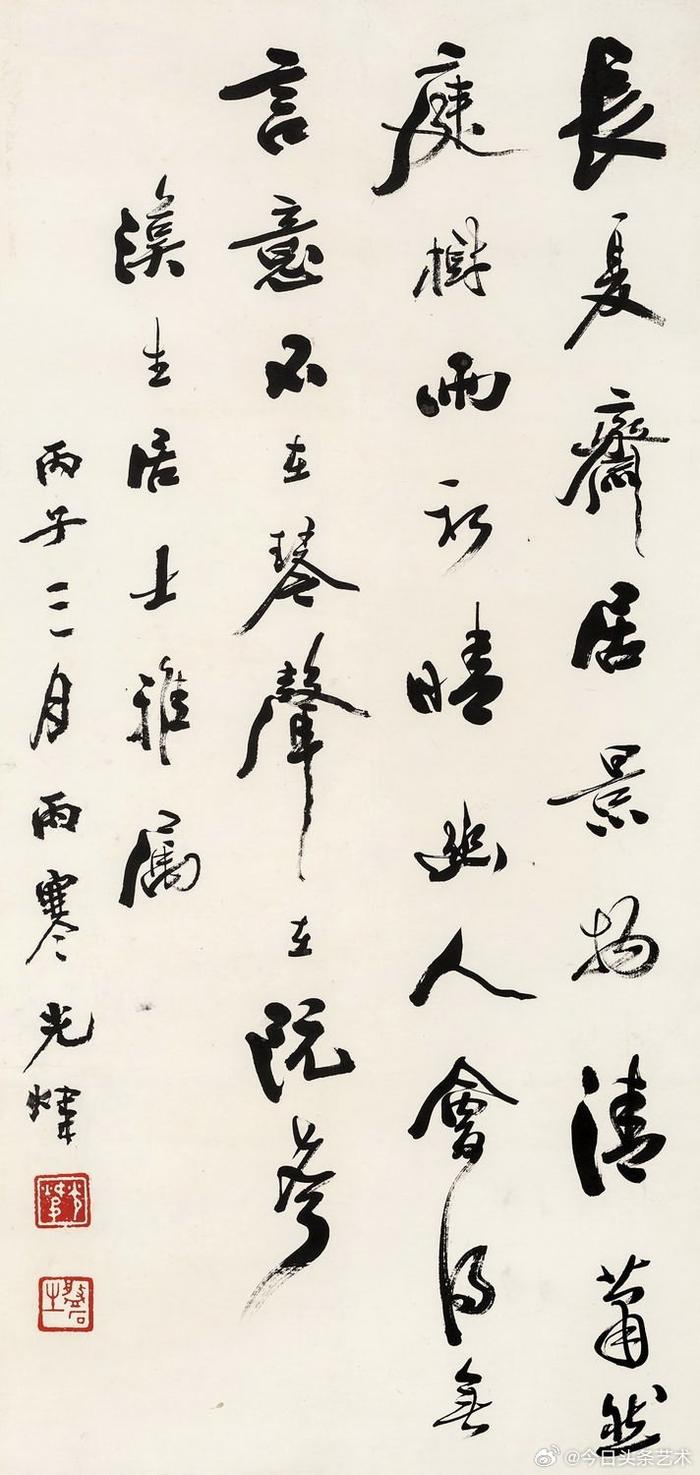 長夏齋居景物清蕭然
庭樹雨初晴幽人會得無
言意不在琴聲在阮
漢生居士雅屬
丙子三月雨寒光煒
@今日头条艺术